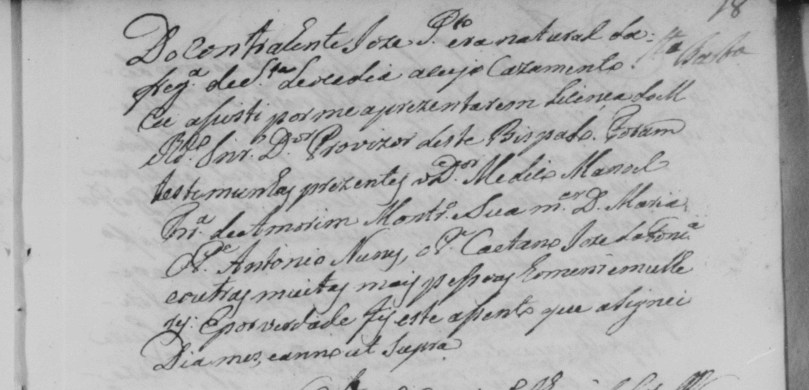 18
Do contraente Joze P.to era natural da
freg.a de S.ta Leocadia a cujo Cazamento
Eu asisti por me aprezentarem Licença do M
R.do Snr. D.or Provizor deste Bispado. Foram
testimunhas prezentes o D.or Medico Manoel
Fr.a de Amorim Montr.o Sua m.er D. Maria,
O P.e Antonio Nunes, o P.e Caetano Joze da Fonc.a
e outras muitas mais pessoas homens e mulhe
res: E por verdade fiz este asento que asignei
Dia mez, e anno ut supra